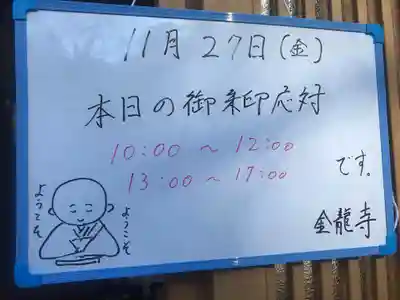 11月27日(金)
本日の御朱印応対
10:00 〜 12:00
13:00 〜 17:00
です。
金龍寺
ようこそ
ようこそ